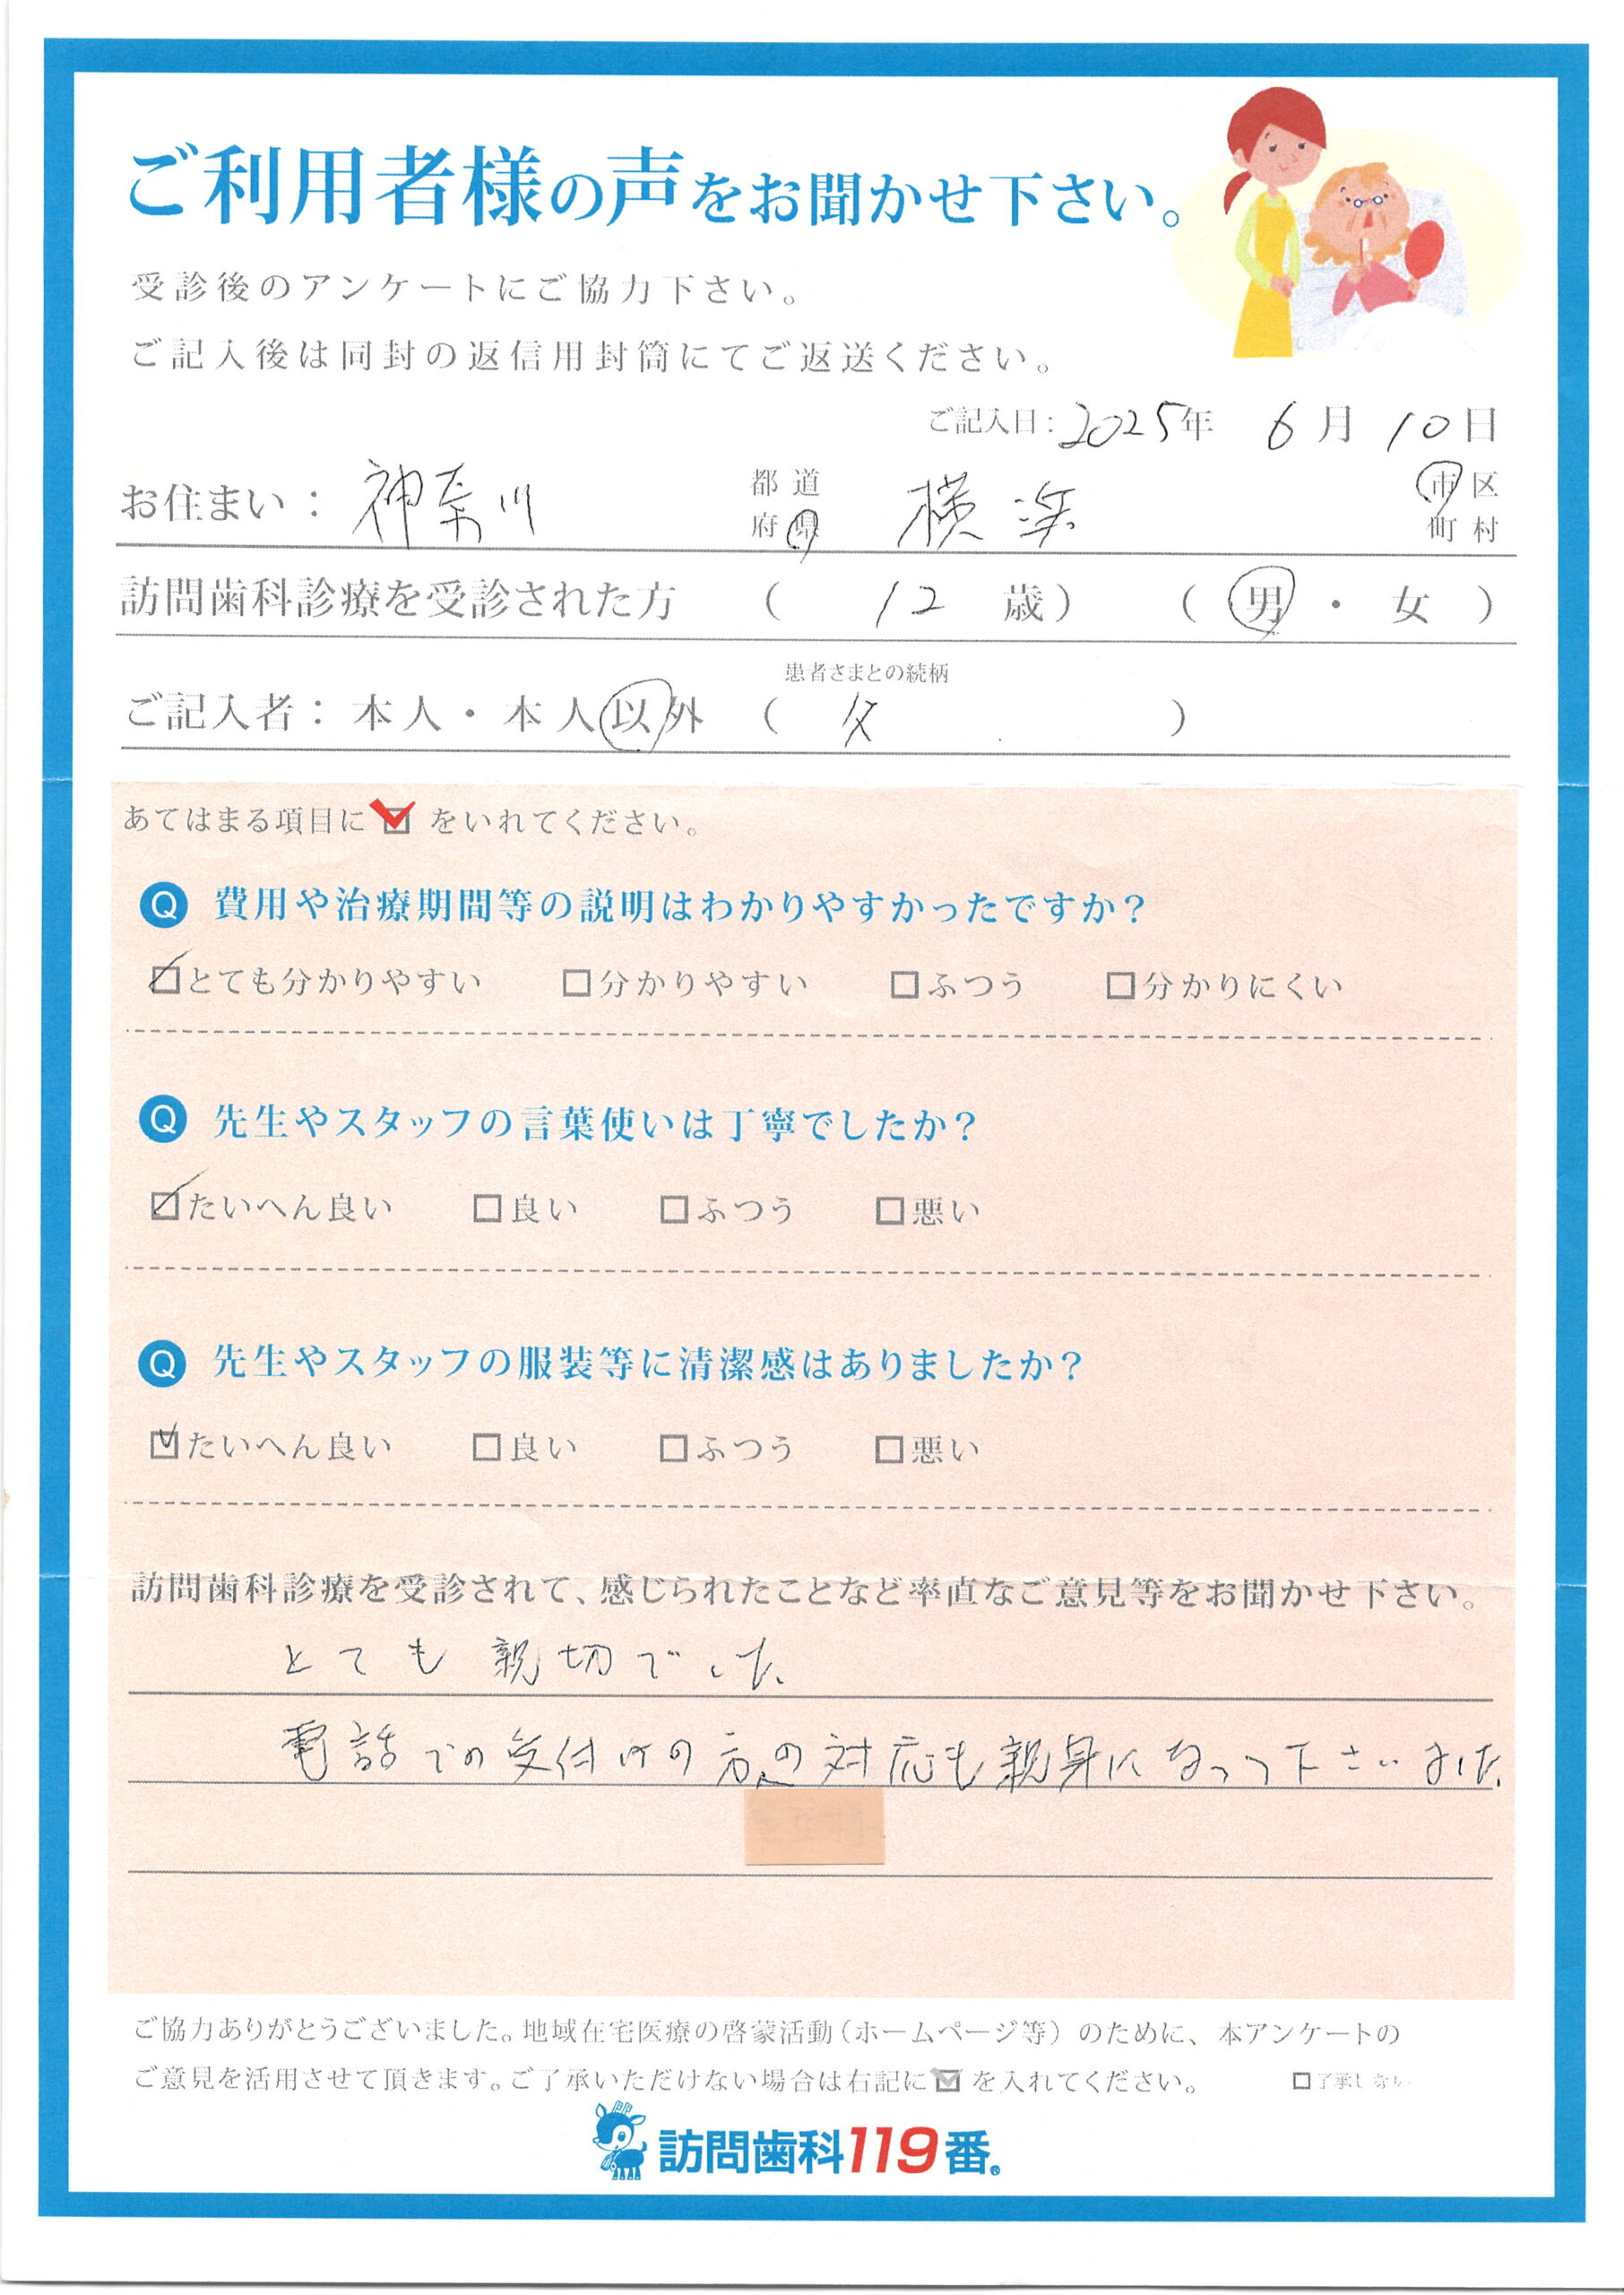 ご利用者様の声をお聞かせ下さい。
受診後のアンケートにご協力下さい。
ご記入後は同封の返信用封筒にてご返送ください。
ご記入日：2025年 6月 10日
お住まい：神奈川 都道府県 横浜 市区町村
訪問歯科診療を受診された方 （ 12 歳） （ 男 ・ 女 ）
患者さまとの続柄
ご記入者：本人・本人以外 （ 父 ）
あてはまる項目に☑をいれてください。
Q 費用や治療期間等の説明はわかりやすかったですか？
☑とても分かりやすい □分かりやすい □ふつう □分かりにくい
Q 先生やスタッフの言葉使いは丁寧でしたか？
☑たいへん良い □良い □ふつう □悪い
Q 先生やスタッフの服装等に清潔感はありましたか？
☑たいへん良い □良い □ふつう □悪い
訪問歯科診療を受診されて、感じられたことなど率直なご意見等をお聞かせ下さい。
とても親切でした
電話での受付けの方の対応も親身になって下さいました
ご協力ありがとうございました。地域在宅医療の啓蒙活動（ホームページ等）のために、本アンケートの
ご意見を活用させて頂きます。ご了承いただけない場合は右記に☑を入れてください。 □了承しない
訪問歯科119番®